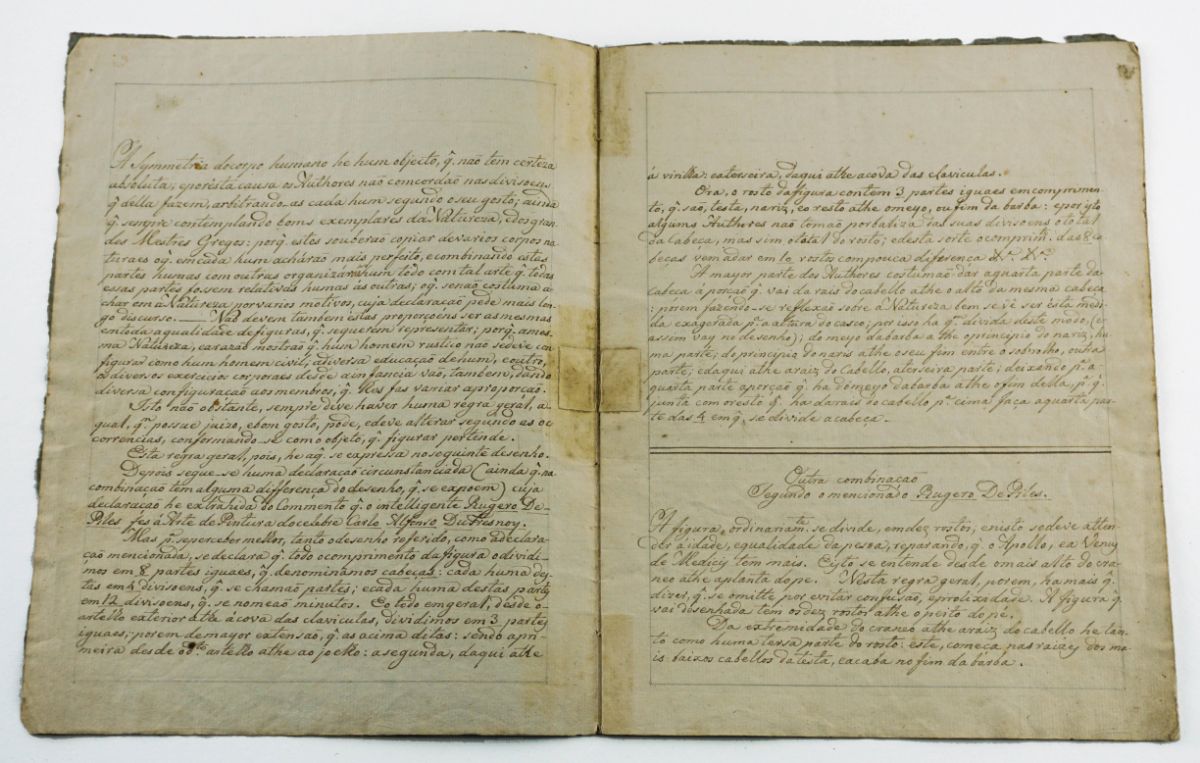 A Symmetria docorpo humano he hum objecto, q̃. não tem certeza
absoluta; eporesta causa os Authores não comcordão nas divisoens
q̃ della fazem, arbitrando-as cada hum segundo oseu gosto; ainda
q̃. sempre contemplando boms exemplares da Natureza, edos gran
des Mestres Gregos: porq̃. estes souberão copiar devarios corpos na
turaes oq̃. emcada hum acharão mais perfeito, ecombinando estas
partes humas com outras organizarão hum todo com tal arte q̃. todas
essas partes fossem relativas humas ás outras; oq̃. senão costuma a
char em a Natureza porvarios motivos, cuja declaração pede mais lon
go discurso. —— Não devem tambem estas proporçoéns ser as mesmas
emtoda aqualidade defiguras, q̃. sequerem representar; porq̃. ames
ma Natureza, earazão mostrão q̃. hum homem rustico não sedeve con
figurar como hum homem civil, adiversa educação dehum, eoutro,
os diversos exercicios corporaes desde ainfancia vão, tambem, dando
diversa configuração aos membros, q̃. lhes fas variar aproporção.
Isto não obstante, sempre deve haver huma regra geral, a
qual, q̃. possue juizo, ebom gosto, póde, edeve alterar segundo as oc
correncias, conformando-se como objeto, q̃. figurar pertende.
Esta regra geral, pois, he aq̃. se expressa noseguinte desenho.
Depois segue-se huma declaração circunstanciada (ainda q̃. na
combinação tem alguma differença do desenho, q̃. se expoem) cuja
declaração he extrahida do Commento q̃. o intelligente Rugero De-
Piles fes á Arte de Pintura docelebre Carlo Alfonso Du Fresnoy.
Mas pª. seperceber melhor, tanto odesenho referido, como adeclara
ção mencionada, se declara q̃. todo ocomprimento da figura odividi
mos em 8 partes iguaes, q̃. denominâmos cabeças: cada huma des
tas em 4 divisoens, q̃. se chamão partes; ecada huma destas partes
em 12 divisoens, q̃. se nomeão minutos. Eo todo emgeral, desde o-
artelho exterior athe ácova das claviculas, dividimos em 3 partes
iguaes; porem de mayor extensão, q̃. as acima ditas: sendo apri-
meira desde o dto. artelho athe ao joelho: a segunda, daqui athe
á virilha: eaterseira, daqui athe acova das claviculas.
Ora, o rosto dafigura contem 3 partes iguaes emcomprimen
to, q̃. são, testa, nariz, eo resto athe omeyo, ou fim da barba: epor q̃to
alguns Authores não tomão porbaliza das suas divisoens ototal
da cabeça, mas sim ototal do rosto; edesta sorte ocomprimto. das 8 ca
beças vem adar em 10 rostos compouca diferença &ca. &ca.
A mayor parte dos Authores costumão dar aquarta parte da
cabeça á porção q̃. vai da rais do cabello athe o alto da mesma cabeça
: porem fazendo-se reflexão sobre a Natureza bem se vê ser esta medi
da exagerada pª. a altura do casco; por isso ha q̃m. divida deste modo, (e
assim vay no desenho); do meyo da barba a the oprincipio do nariz, hu
ma parte; do principio donaris athe oseu fim entre o sobrolho, outra
parte; edaqui athe araiz do cabello, aterseira parte; deixando pª. a
quarta parte aporção q̃. ha domeyo dabarba athe ofim della, pª. q̃.
junta com oresto q̃. ha darais do cabello pª. cima, faça aquarta par
te das 4 em q̃. se divide acabeça.
Outra combinação
Segundo o mencionado Rugero De Piles.
A figura, ordinariamte. se divide, emdez rostos, enisto sedeve atten
der áidade, equalidade da pesoa, reparando, q̃. o Apollo, ea Venus
de Medicis tem mais. Eisto se entende desde omais alto do cra
neo athe aplanta dope. Nesta regra geral, porem, ha mais q̃.
dizer, q̃. se omitte por evitar confusão, eprolixidade. A figura q̃
vai desenhada tem os dez rostos athe opeito do pé.
Da extremidade do craneo athe araiz do cabello he tan
to como huma tersa parte do rosto: este, começa nas raizes dos ma
is baixos cabellos da testa, eacaba no fim da barba.